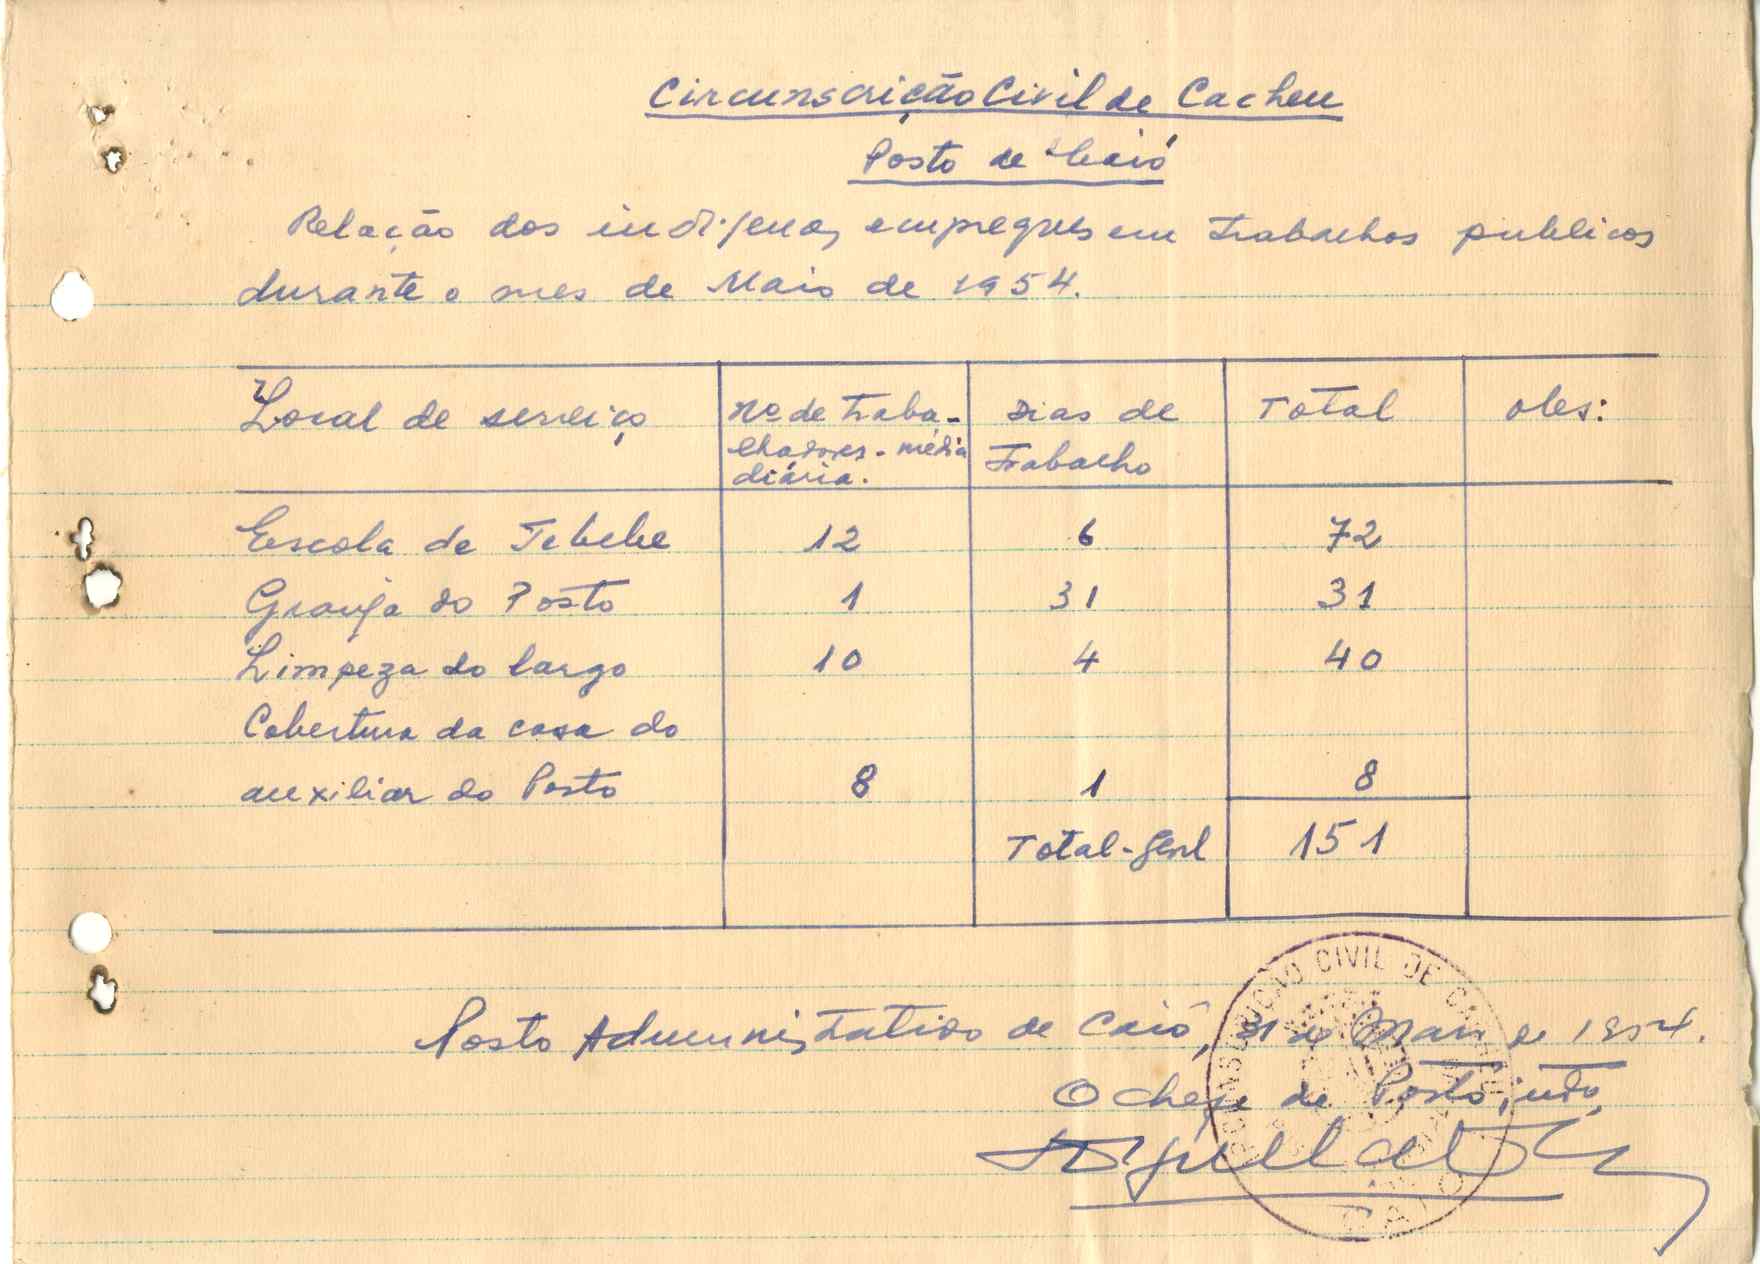 Circunscrição Civil de Cacheu
Posto de Caió
Relação dos indigenas empregues em trabalhos publicos
durante o mes de Maio de 1954.
Local de serviço Nº de traba- Dias de Total Obs:
lhadores - média Trabalho
diária.
Escola de Tebebe 12 6 72
Granja do Posto 1 31 31
Limpeza do largo 10 4 40
Cobertura da casa do
auxiliar do Posto 8 1 8
Total-Geral 151
Posto Administrativo de Caió, 31 de Maio de 1954.
O chefe de Posto, intº,
CIVIL DE
CAIO